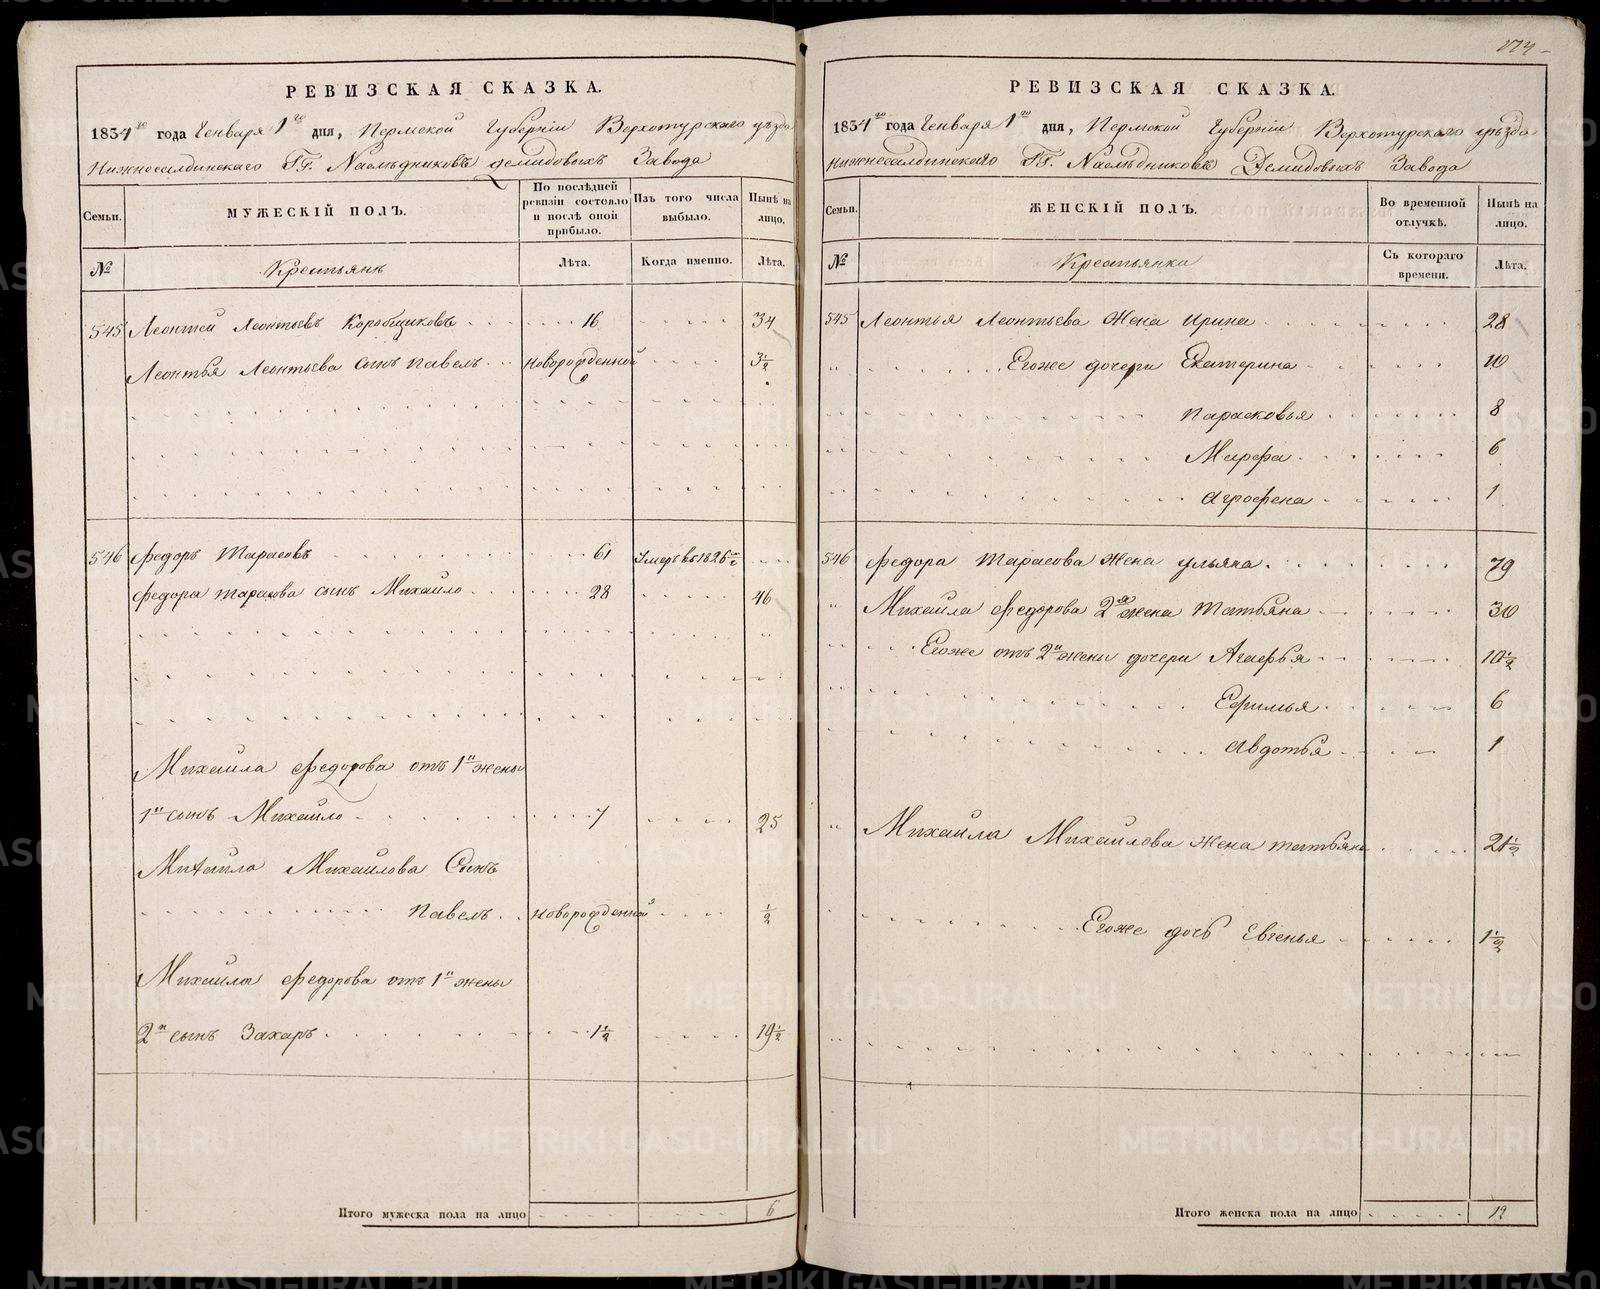 РЕВИЗСКАЯ СКАЗКА.
1834го года Генваря 1го дня, Пермской Губернiи Верхотурскаго уѣзда
Нижнесалдинскаго ГГ. Наслѣдниковъ Демидовыхъ Завода
Семьи.
МУЖЕСКІЙ ПОЛЪ.
По послѣдней ревизіи состояло и послѣ оной прибыло.
Изъ того числа выбыло.
Нынѣ на лицо.
№
Крестьянъ
Лѣта.
Когда именно.
Лѣта.
545 Леонтей Леонтьевъ Коробщиковъ 16 34
Леонтья Леонтьева сынъ Павелъ новорожденной 3½
546 Федоръ Тарасовъ 61 Умеръ въ 1826 г
Федора Тарасова сынъ Михайло 28 46
Михаила Федорова отъ 1й жены
1й сынъ Михайло 7 25
Михаила Михайлова Сынъ
Павелъ новорожденной ½
Михаила Федорова отъ 1й жены
2й сынъ Захаръ 1½ 19½
Итого мужеска пола на лицо 6
РЕВИЗСКАЯ СКАЗКА.
1834го года Генваря 1го дня, Пермской Губернiи Верхотурскаго уѣзда
Нижнесалдинскаго ГГ. Наслѣдниковъ Демидовыхъ Завода
Семьи.
ЖЕНСКІЙ ПОЛЪ.
Во временной отлучкѣ.
Нынѣ на лицо.
№
Крестьянки
Съ котораго времени.
Лѣта.
545 Леонтья Леонтьева Жена Ирина 28
Егоже дочери Екатерина 10
Парасковья 8
Марфа 6
Агрофена 1
546 Федора Тарасова Жена Ульяна 79
Михаила Федорова 2я жена Татьяна 30
Егоже отъ 2й жены дочери Агафья 10½
Ефимья 6
Авдотья 1
Михаила Михайлова жена Татьяна 21½
Егоже дочь Евгенья 1½
Итого женска пола на лицо 12
METRIKI.GASO-URAL.RU